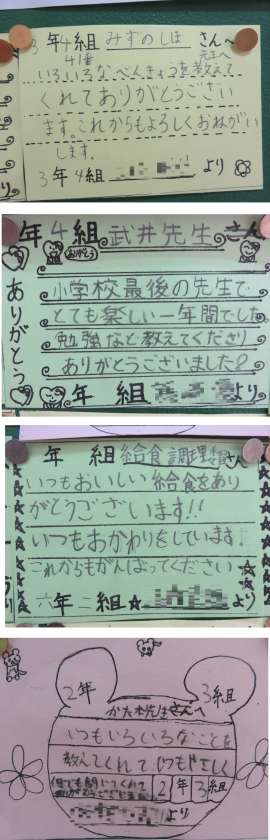 3年4組みずのしほさんへ
41番
いろいろなべんきょうを教えて
くれてありがとうござい
ます。これからもよろしくおねがい
します。
3年4組 より
年4組武井先生さん
ありがとう
ありがとう
小学校最後の先生で
とても楽しい一年間でした
勉強など教えてくださり
ありがとうございました。
年 組 より
年 組給食調理員さん
いつもおいしい給食をあり
がとうございます!!
いつもおかわりをしています
これからもがんばってください
六年二組☆ より
2年 3組
かた木先生さんへ
いつもいろいろなことを
教えてくれていつもやさしく
2年3組
より